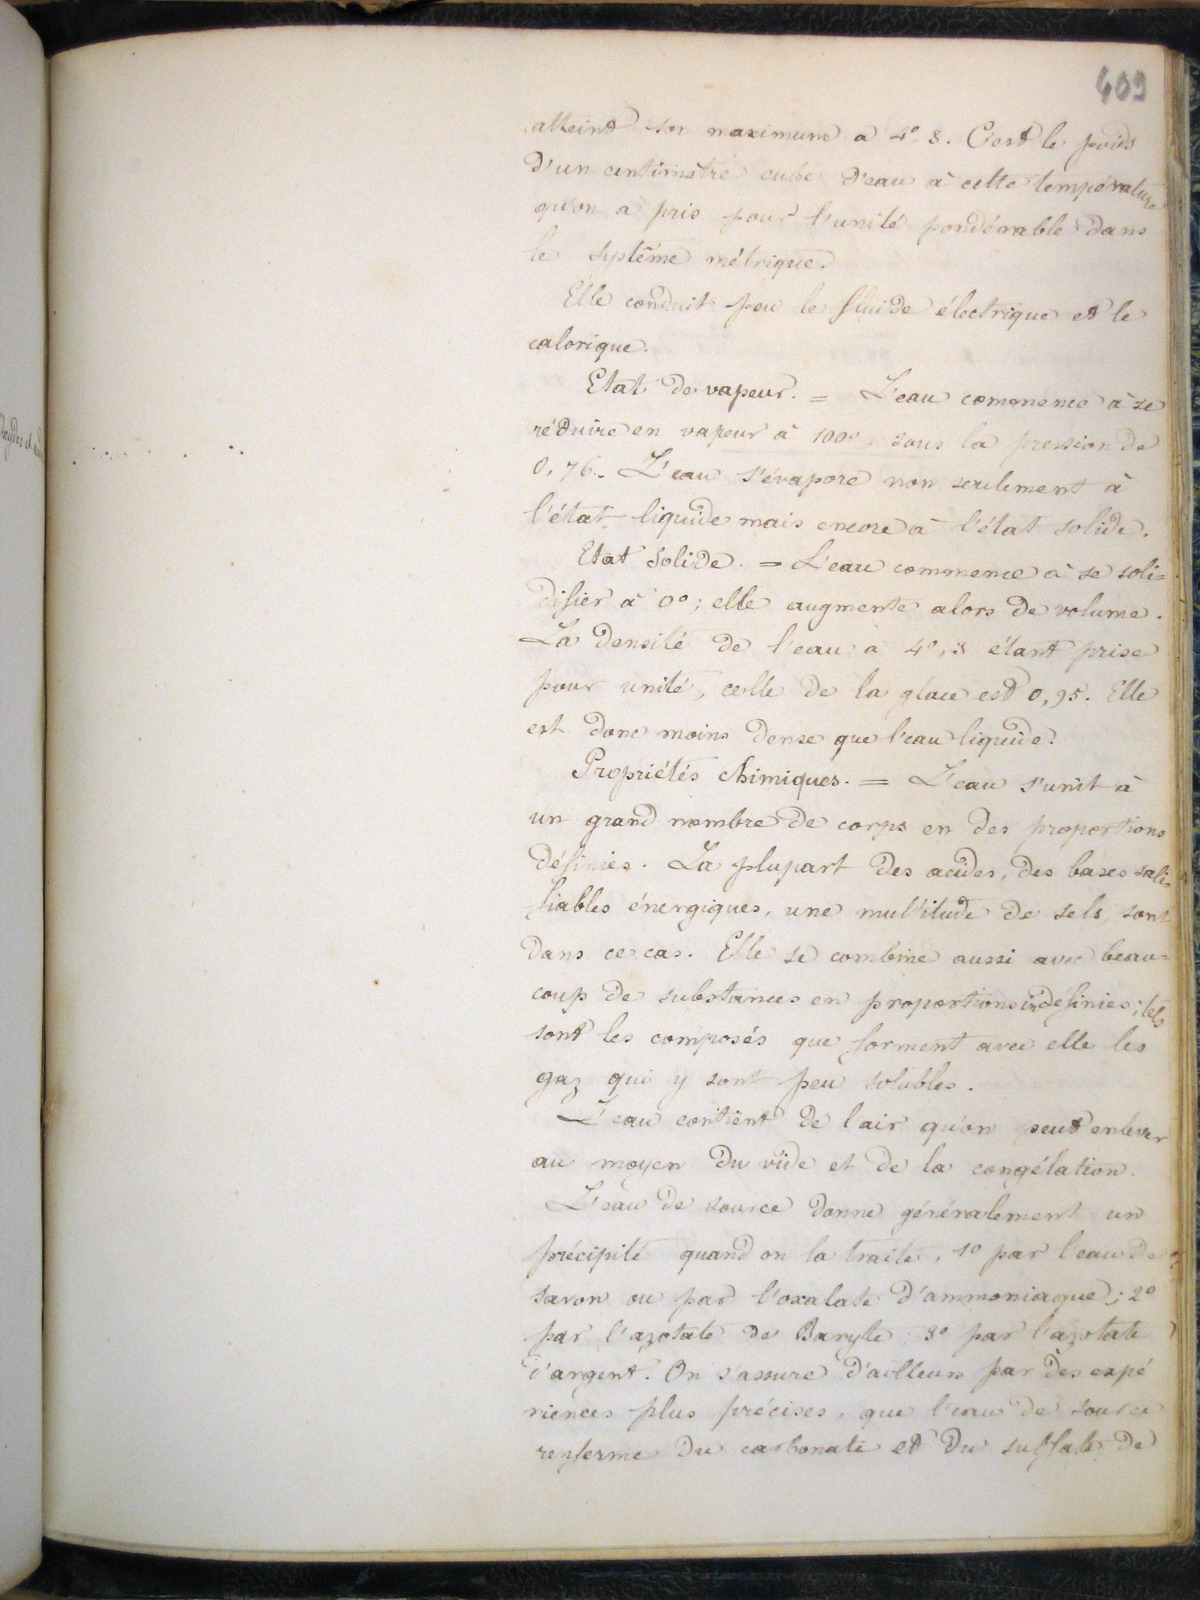 409
atteint son maximum a 4°, 3. C'est le poids
d'un centimètre cube d'eau à cette température
qu'on a pris pour l'unité pondérable dans
le système métrique.
Elle conduit peu le fluide électrique et le
calorique.
Etat de vapeur. = L'eau commence à se
réduire en vapeur à 100° sous la pression de
0,76. L'eau s'évapore non seulement à
l'état liquide mais encore à l'état solide.
Etat Solide. = L'eau commence à se soli=
difier à 0°; elle augmente alors de volume.
La densité de l'eau a 4°, 3 étant prise
pour unité, celle de la glace est 0,95. Elle
est donc moins dense que l'eau liquide.
Propriétés chimiques. = L'eau s'unit à
un grand nombre de corps en des proportions
définies. La plupart des acides, des bases sali=
fiables énergiques, une multitude de sels, sont
dans ce cas. Elle se combine aussi avec beau=
coup de substances en proportions indéfinies; tels
sont les composés que forment avec elle les
gaz qui y sont peu solubles.
L'eau contient de l'air qu'on peut enlever
au moyen du vide et de la congélation.
L'eau de source donne généralement un
précipité quand on la traite, 1° par l'eau de
savon ou par l'oxalate d'ammoniaque; 2°
par l'azotate de Baryte, 3° par l'azotate
d'argent. On s'assure d'ailleurs par des expé
riences plus précises, que l'eau de source
renferme du carbonate et du sulfate de